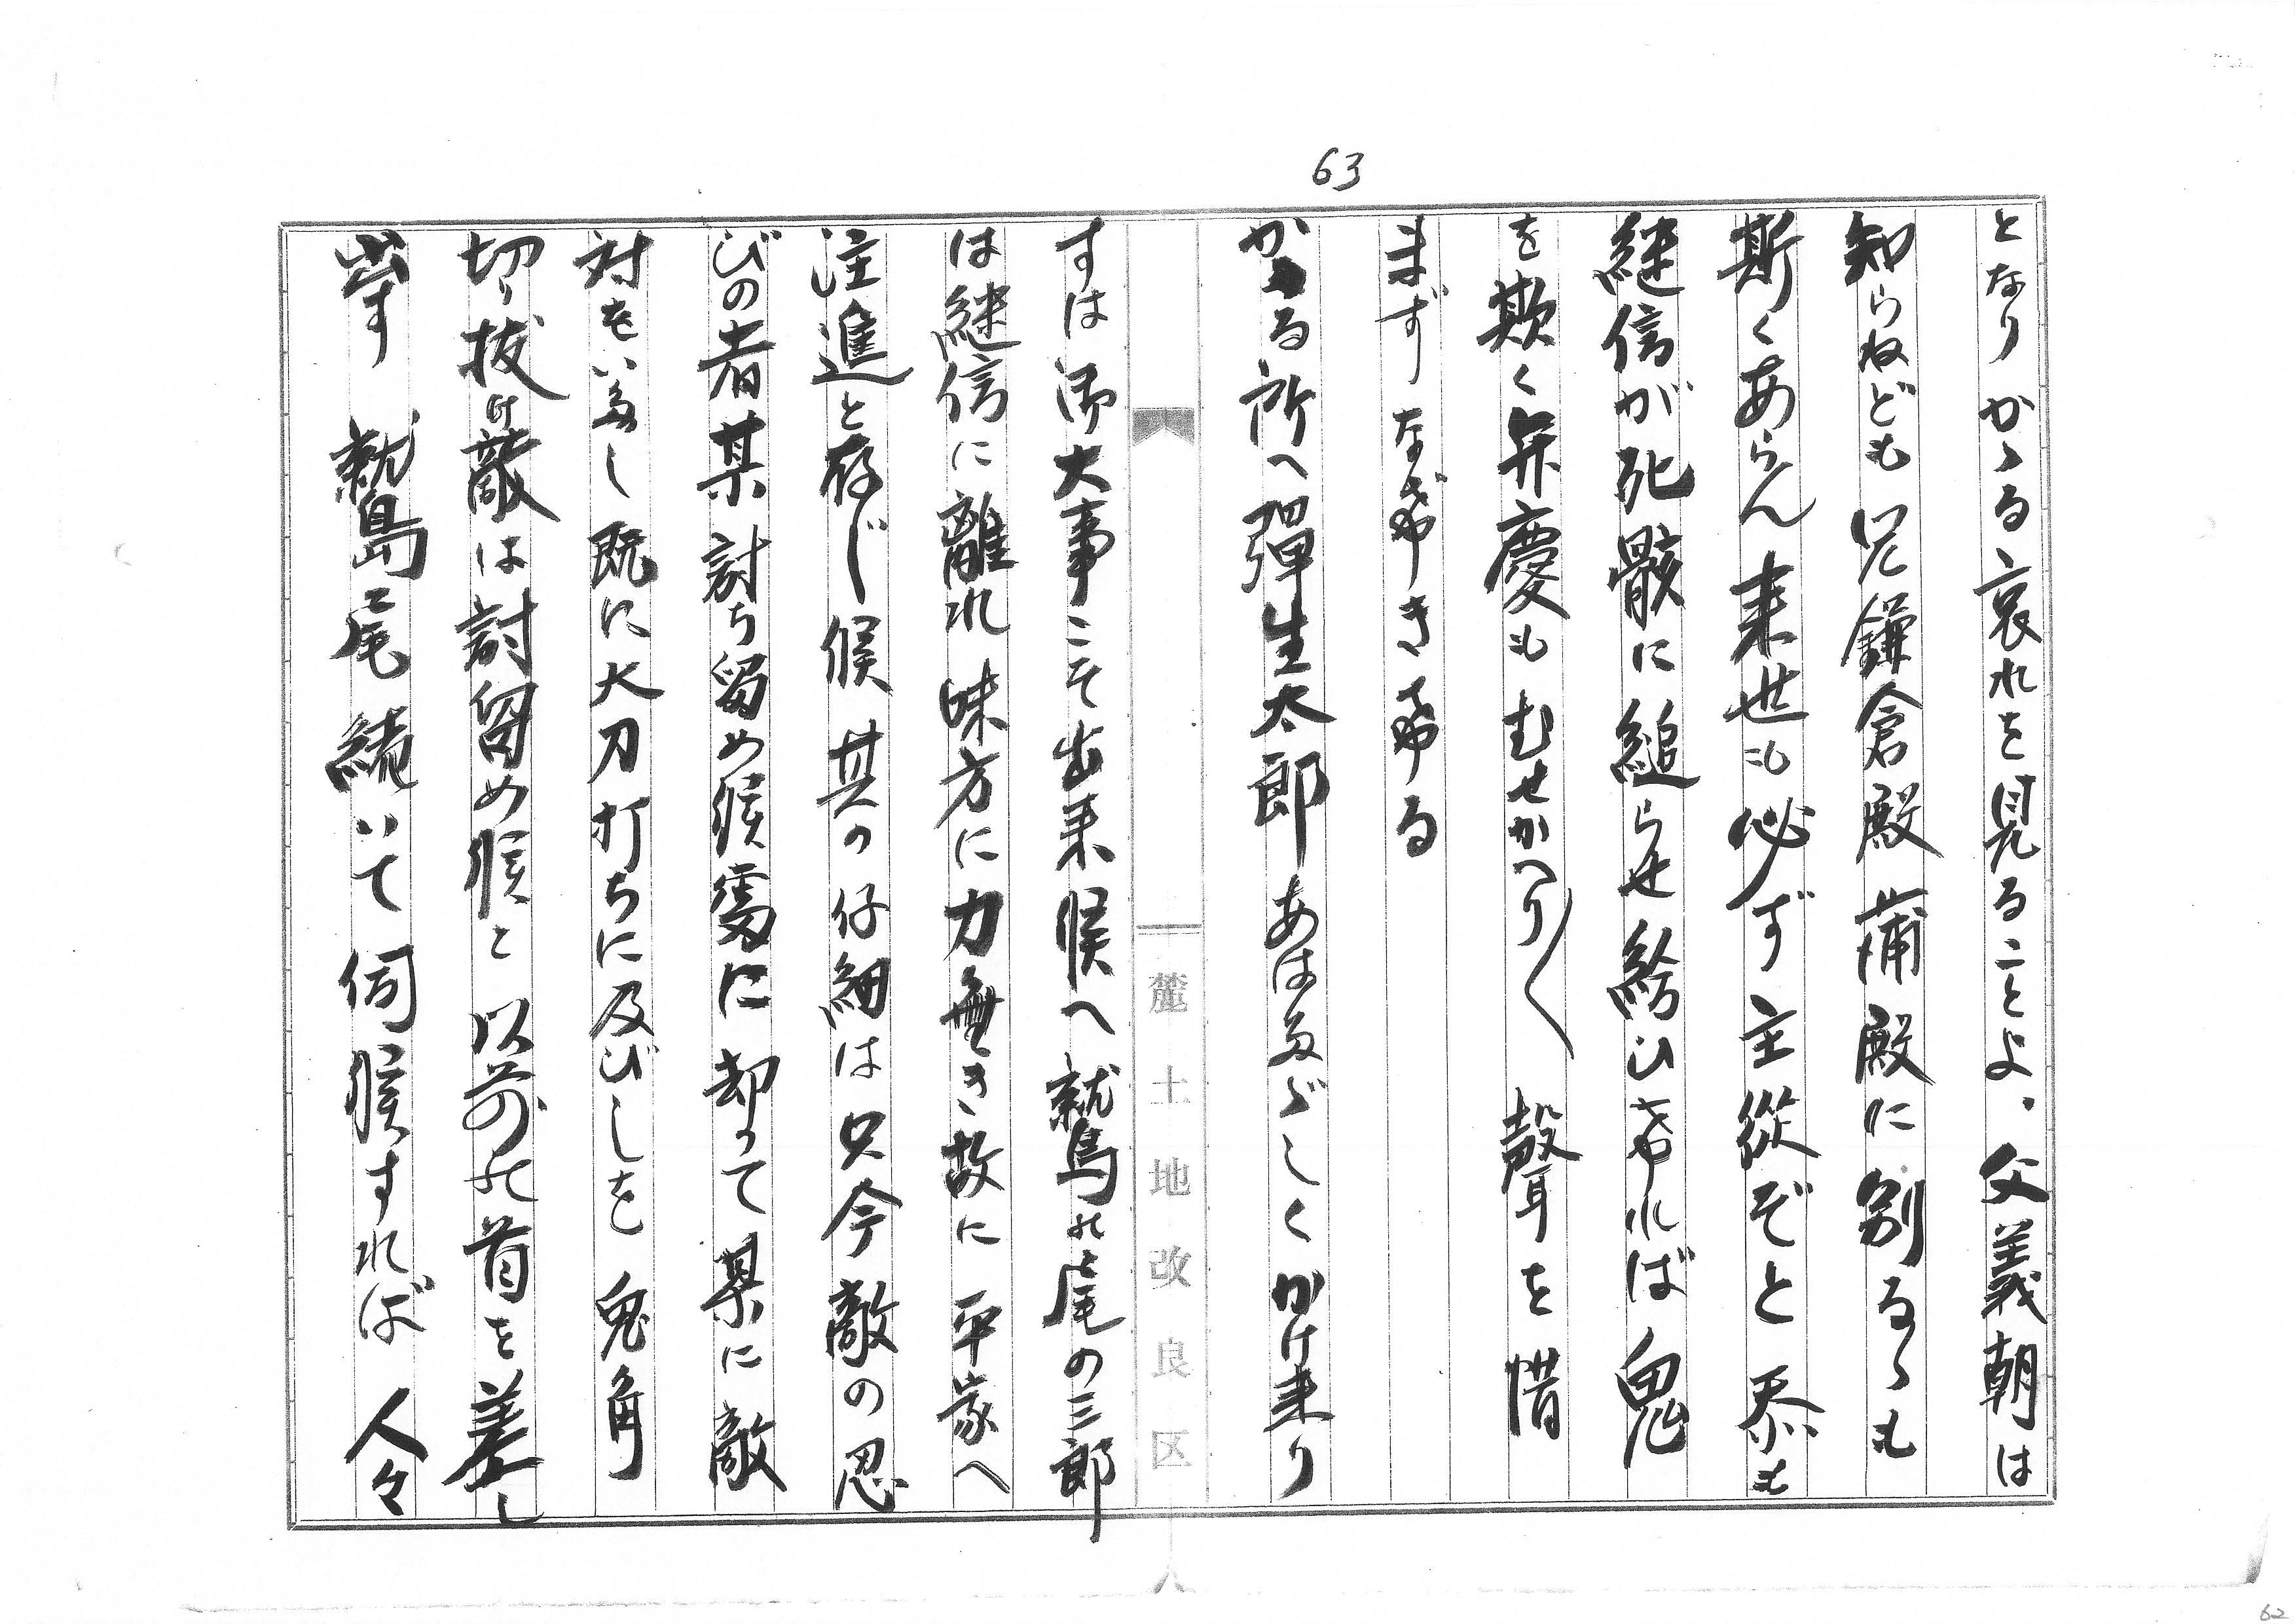 63
となりかゝる哀れを見ることよ、父義朝は
知らねども兄鎌倉殿蒲殿に別るゝも
斯くあらん来世も必ず主従ぞと忝も
継信が死骸に縋らせ給ひければ鬼
を欺く弁慶もむせかへり〳〵聲を惜
まずなげきける
かゝる所へ彈生太郎あはたゞしくかけ来り
すは御大事こそ出来候へ鷲の尾の三郎
は継信に離れ味方に力無き故に平家へ
注進と存じ候其の仔細は只今敵の忍
びの者某討ち留め候處に却って某に敵
対をいたし既に大刀打ちに及びしを兎角
切り抜け敵は討留め候と以前の首を差し
出す 鷲尾続いて伺候すれば人々
麓土地改良区
62